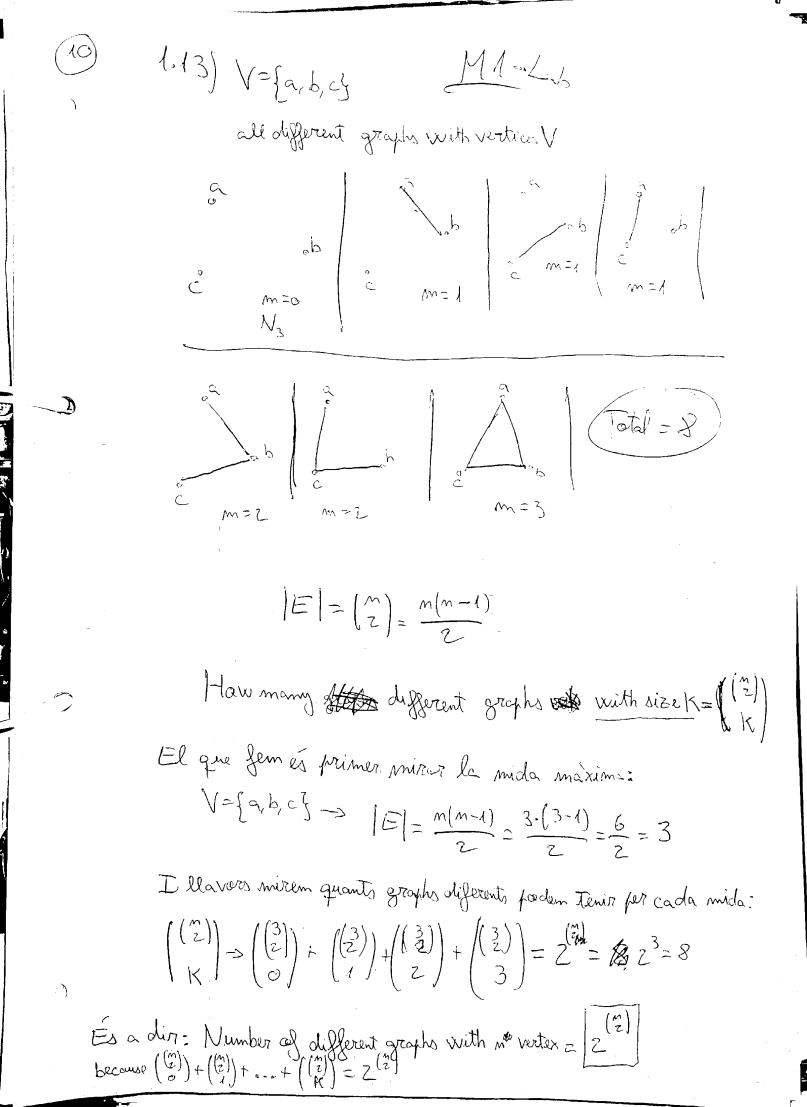 10
1.13) V={a,b,c} M1-Lab
all different graphs with vertices V
a b c m=0 N₃ | a b c m=1 | a b c m=1 | a b c m=1
a b c m=2 | a b c m=2 | a b c m=3 | Total = 8
|E| = (n 2) = n(n-1)/2
How many different graphs with size K = ((n 2) K)
El que fem és primer mirar la mida màxima:
V={a,b,c} → |E| = n(n-1)/2 = 3·(3-1)/2 = 6/2 = 3
I llavors mirem quants graphs diferents podem tenir per cada mida:
((n 2) K) → ((3 2) 0) + ((3 2) 1) + ((3 2) 2) + ((3 2) 3) = 2^(n 2) = 2³ = 8
És a dir: Number of different graphs with n vertex = 2^(n 2)
because ((n 2) 0) + ((n 2) 1) + .... + ((n 2) K) = 2^(n 2)